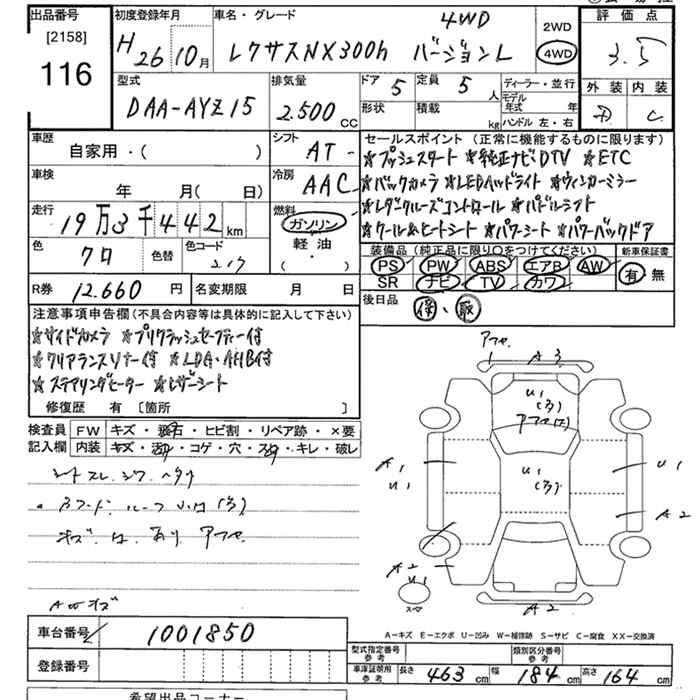 出品番号
[2158]
116
初度登録年月
H26 10月
車名・グレード
4WD
レクサスNX300h バージョンL
2WD
4WD
評価点
3.5
外装 内装
C
型式
DAA-AYZ15
排気量
2.500 CC
ドア 5
定員 5 人
形状
積載 kg
ディーラー・並行
モデル年式 年
ハンドル 左・右
車歴
自家用・( )
シフト
AT-
車検
年 月( 日)
冷房
AAC
走行
19万3千442km
燃料
ガソリン
軽油
( ・ )
色
クロ
色替
色コード
217
R券 12.660 円
名変期限 月 日
セールスポイント(正常に機能するものに限ります)
☆プッシュスタート ☆純正ナビDTV ☆ETC
☆バックカメラ ☆LEDヘッドライト ☆ウィンカーミラー
☆レダクルーズコントロール ☆パドルシフト
☆クール&ヒートシート ☆パワーシート ☆パワーバックドア
装備品(純正品に限り○をつけてください)
PS PW ABS エアB AW
SR ナビ TV カワ
新車保証書
有・無
後日品
保・取
注意事項申告欄(不具合内容等は具体的に記入して下さい)
☆サイドカメラ ☆プリクラッシュセーフティー付
☆クリアランスソナー付 ☆LDA・AHB付
☆ステアリングヒーター ☆レザーシート
修復歴 有 [箇所 ]
検査員記入欄
FW キズ・飛石・ヒビ割・リペア跡・×要
内装 キズ・汚れ・コゲ・穴・スレ・キレ・破レ
シートスレ、シワ、ヘタリ
フード、ルーフ U1(多)
キズ、凹、あり
AWキズ
アフセ
A3
U1
(多)
U1
(多)
A1
U1
U1
A2
A2
U1
スペア
A2
A-キズ E-エクボ U-凹み W-補修跡 S-サビ C-腐食 XX-交換済
車台番号
1001850
登録番号
型式指定番号
参考
類別区分番号
参考
車庫証明用
参考
長さ 463 cm 幅 184 cm 高さ 164 cm
希望出品コーナー